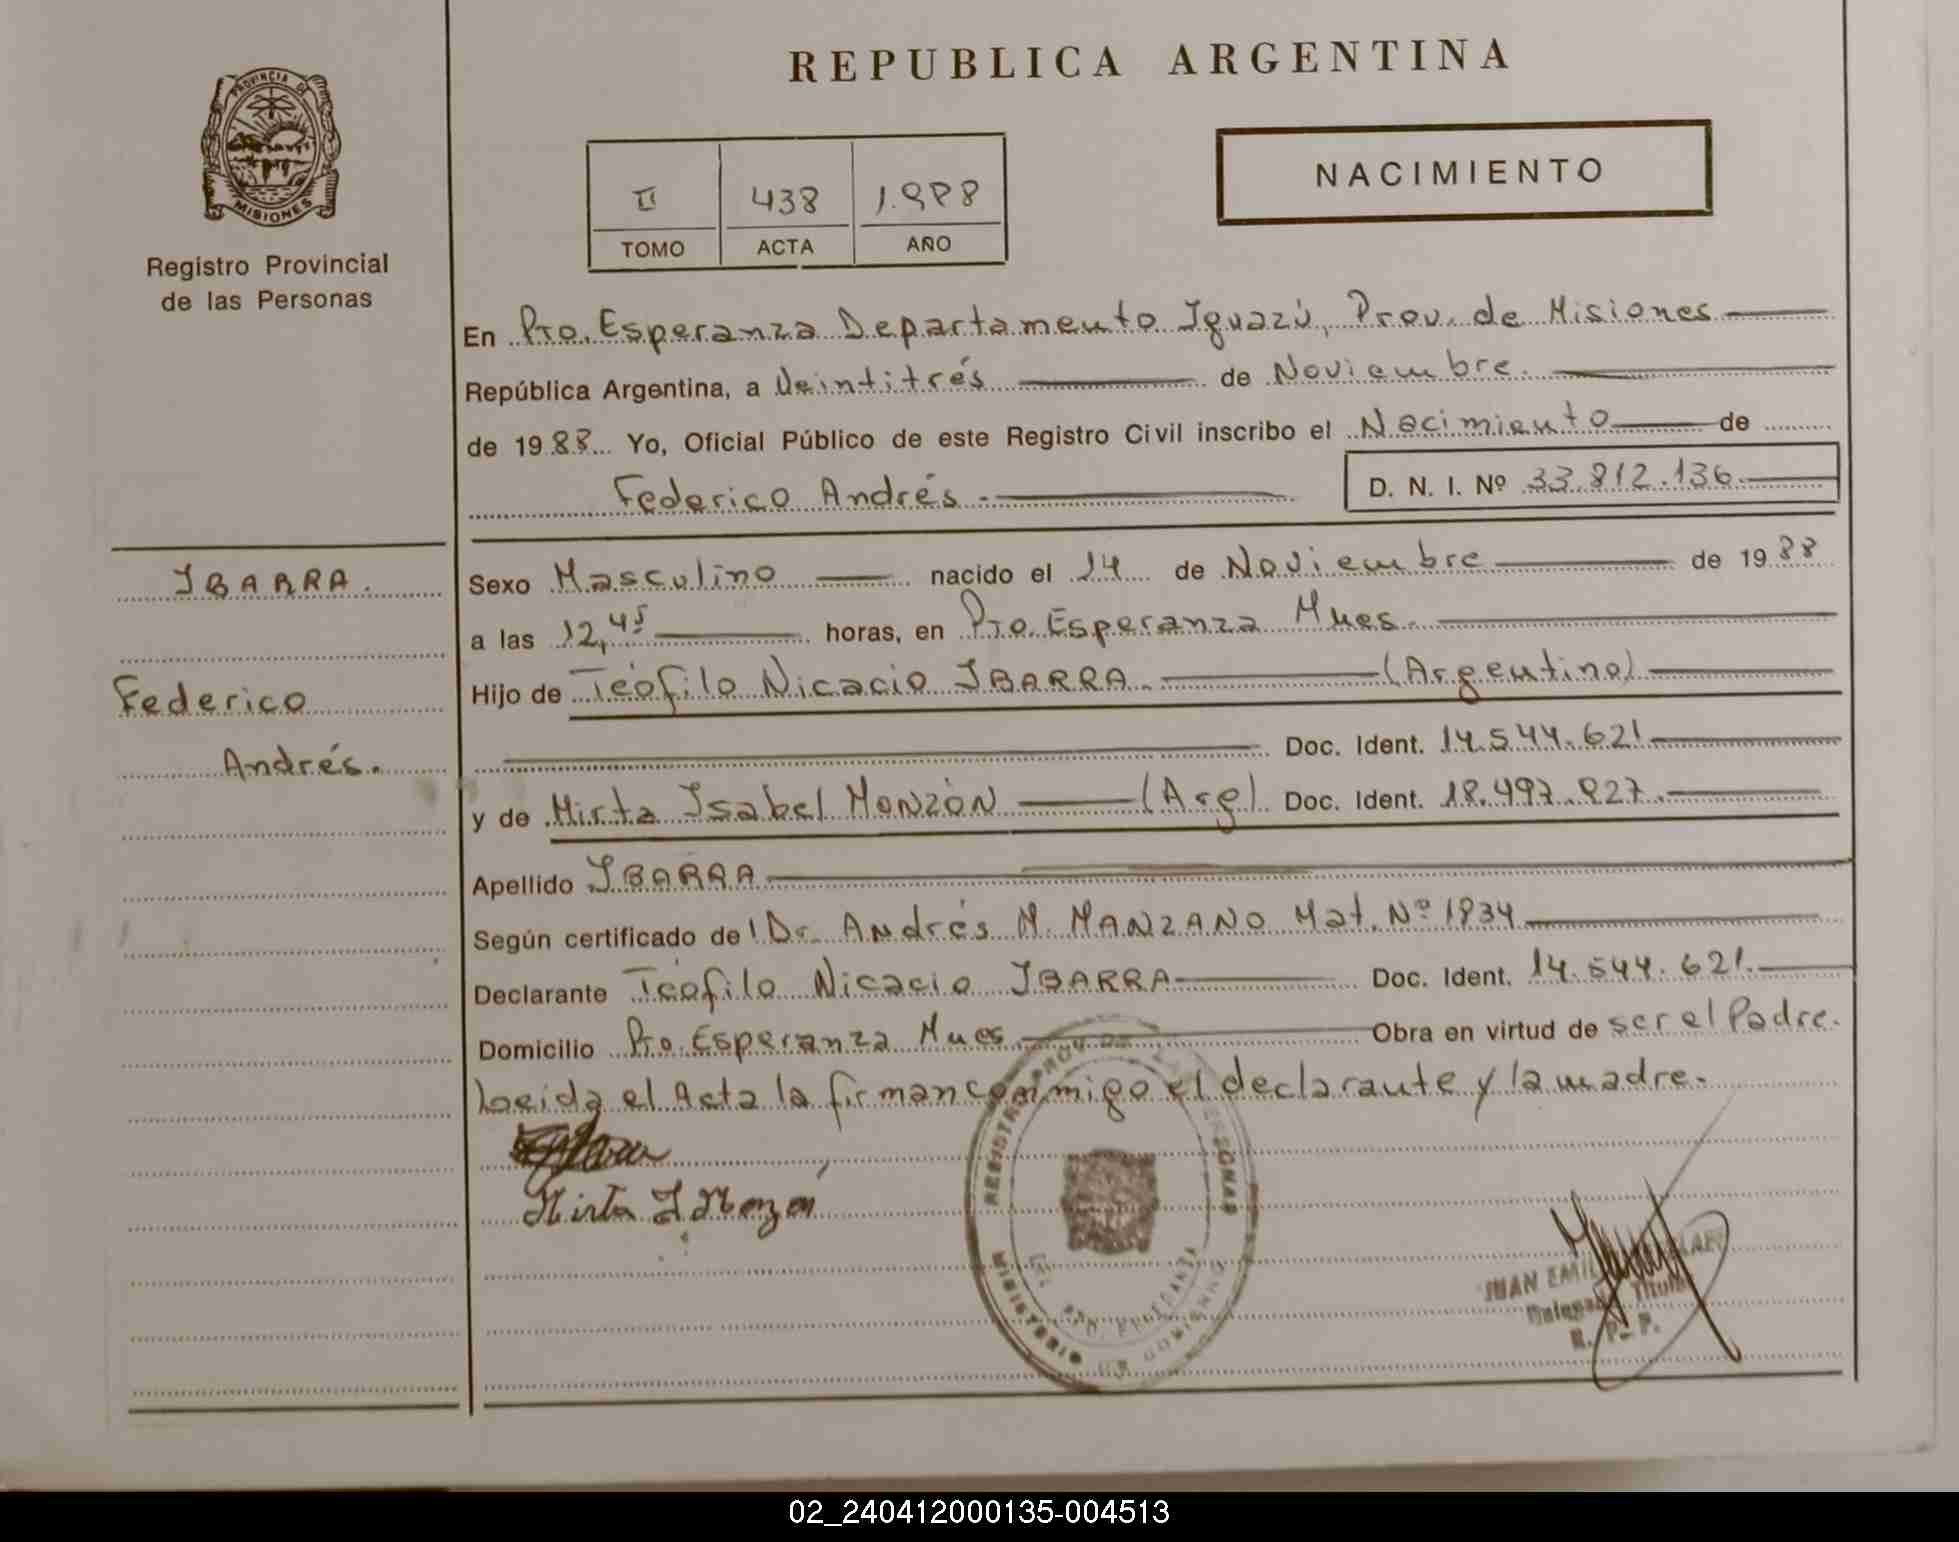 REPUBLICA ARGENTINA
PROVINCIA DE
MISIONES
Registro Provincial
de las Personas
II 438 1.988
TOMO ACTA AÑO
NACIMIENTO
En Pto. Esperanza Departamento Iguazú, Prov. de Misiones
República Argentina, a Veintitrés de Noviembre.
de 1988 Yo, Oficial Público de este Registro Civil inscribo el Nacimiento de
Federico Andrés.-
D. N. I. Nº 33.812.136
IBARRA.
Federico
Andrés.
Sexo Masculino nacido el 14 de Noviembre de 1988
a las 12,45 horas, en Pto. Esperanza Mnes.
Hijo de Teófilo Nicacio IBARRA (Argentino)
Doc. Ident. 14.544.621
y de Mirta Isabel MONZÓN (Arg) Doc. Ident. 18.497.827.
Apellido IBARRA
Según certificado de Dr. Andrés M. MANZANO Mat. Nº 1834
Declarante Teófilo Nicacio IBARRA Doc. Ident. 14.544.621.
Domicilio Pto. Esperanza Mnes Obra en virtud de ser el Padre.
Leida el Acta la firman conmigo el declarante y la madre.
Mirta I Monzón
REGISTRO PROV. DE LAS PERSONAS
MINISTERIO DE GOBIERNO
PTO. ESPERANZA
JUAN
Delegado Titular
R. P. P.
02_240412000135-004513